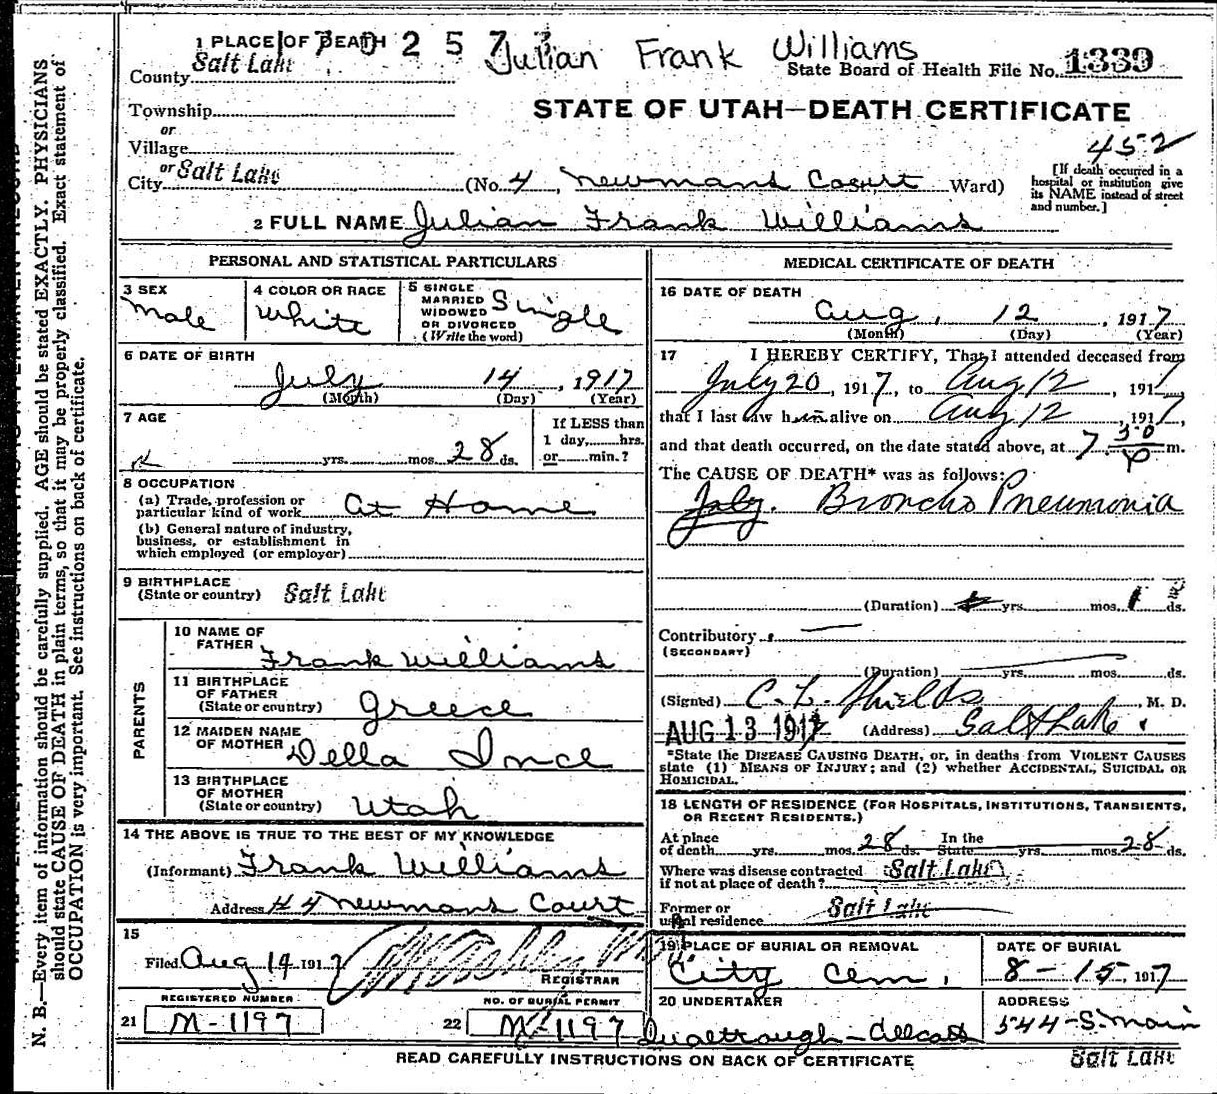 1 PLACE OF DEATH 2 5 7 Julian Frank Williams
County Salt Lake State Board of Health File No. 1339
Township
or
Village
STATE OF UTAH—DEATH CERTIFICATE
452
or
City Salt Lake (No. 4, Newmans Court Ward)
[If death occurred in a
hospital or institution give
its NAME instead of street
and number.]
2 FULL NAME Julian Frank Williams
PERSONAL AND STATISTICAL PARTICULARS
3 SEX
Male
4 COLOR OR RACE
White
5 SINGLE
MARRIED
WIDOWED
OR DIVORCED
(Write the word)
Single
6 DATE OF BIRTH
July 14, 1917
(Month) (Day) (Year)
7 AGE
yrs. mos. 28 ds.
If LESS than
1 day, hrs.
or min.?
8 OCCUPATION
(a) Trade, profession or
particular kind of work At Home
(b) General nature of industry,
business, or establishment in
which employed (or employer)
9 BIRTHPLACE
(State or country) Salt Lake
PARENTS
10 NAME OF
FATHER Frank Williams
11 BIRTHPLACE
OF FATHER
(State or country) Greece
12 MAIDEN NAME
OF MOTHER Della Ince
13 BIRTHPLACE
OF MOTHER
(State or country) Utah
14 THE ABOVE IS TRUE TO THE BEST OF MY KNOWLEDGE
(Informant) Frank Williams
Address # 4 Newmans Court
15
Filed Aug 14 1917
REGISTRAR
REGISTERED NUMBER
21 M-1197
NO. OF BURIAL PERMIT
22 M-1197
MEDICAL CERTIFICATE OF DEATH
16 DATE OF DEATH
Aug. 12, 1917
(Month) (Day) (Year)
17 I HEREBY CERTIFY, That I attended deceased from
July 20, 1917, to Aug 12, 1917,
that I last saw him alive on Aug 12, 1917,
and that death occurred, on the date stated above, at 7 30 P m.
The CAUSE OF DEATH* was as follows:
July. Broncho Pneumonia
(Duration) yrs. mos. ds.
Contributory
(SECONDARY)
(Duration) yrs. mos. ds.
(Signed) C. L. Shields, M. D.
AUG 13 1917 (Address) Salt Lake
*State the DISEASE CAUSING DEATH, or, in deaths from VIOLENT CAUSES
state (1) MEANS OF INJURY; and (2) whether ACCIDENTAL, SUICIDAL OR
HOMICIDAL.
18 LENGTH OF RESIDENCE (FOR HOSPITALS, INSTITUTIONS, TRANSIENTS,
OR RECENT RESIDENTS.)
At place In the
of death yrs. mos. 28 ds. State yrs. mos. 28 ds.
Where was disease contracted
if not at place of death? Salt Lake
Former or
usual residence Salt Lake
19 PLACE OF BURIAL OR REMOVAL
City Cem.
DATE OF BURIAL
8-15, 1917
20 UNDERTAKER
ADDRESS
544-S. Main
Salt Lake
READ CAREFULLY INSTRUCTIONS ON BACK OF CERTIFICATE
N. B.—Every item of information should be carefully supplied. AGE should be stated EXACTLY. PHYSICIANS
should state CAUSE OF DEATH in plain terms, so that it may be properly classified. Exact statement of
OCCUPATION is very important. See instructions on back of certificate.